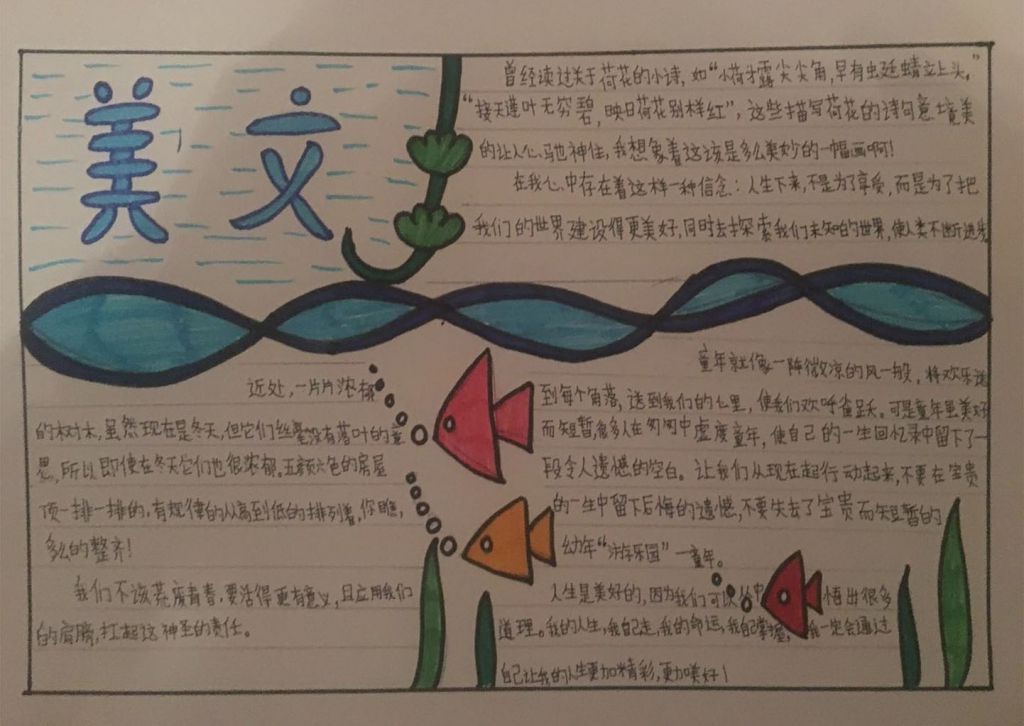 美文
曾经读过关于荷花的小诗，如“小荷才露尖尖角，早有虫廷蜻立上头。”
“接天莲叶无穷碧，映日荷花别样红”，这些描写荷花的诗句意境美
的让人心驰神往，我想象着这该是多么美妙的一幅画啊！
在我心中存在着这样一种信念：人生下来，不是为了享受，而是为了把
我们的世界建设得更美好，同时去探索我们未知的世界，使人类不断进步
近处，一片片浓郁
的树木，虽然现在是冬天，但它们丝毫没有落叶的意
思，所以即使在冬天它们也很浓郁。五颜六色的房屋
顶一排一排的，有规律的从高到低的排列着，你瞧，
多么的整齐！
我们不该荒废青春，要活得更有意义，且应用我们
的肩膀，扛起这神圣的责任。
童年就像一阵微凉的风一般，将欢乐送
到每个角落，送到我们的心里，使我们欢呼雀跃。可是童年虽美好
而短暂，很多人在匆匆中虚度童年，使自己的一生回忆录中留下了一
段令人遗憾的空白。让我们从现在起行动起来，不要在宝贵
的一生中留下后悔的遗憾，不要失去了宝贵而短暂的
幼年“游乐园”一童年。
人生是美好的，因为我们可以从中悟出很多
道理。我的人生，我自己走，我的命运，我自己掌握，我一定会通过
自己让我的人生更加精彩，更加美好！